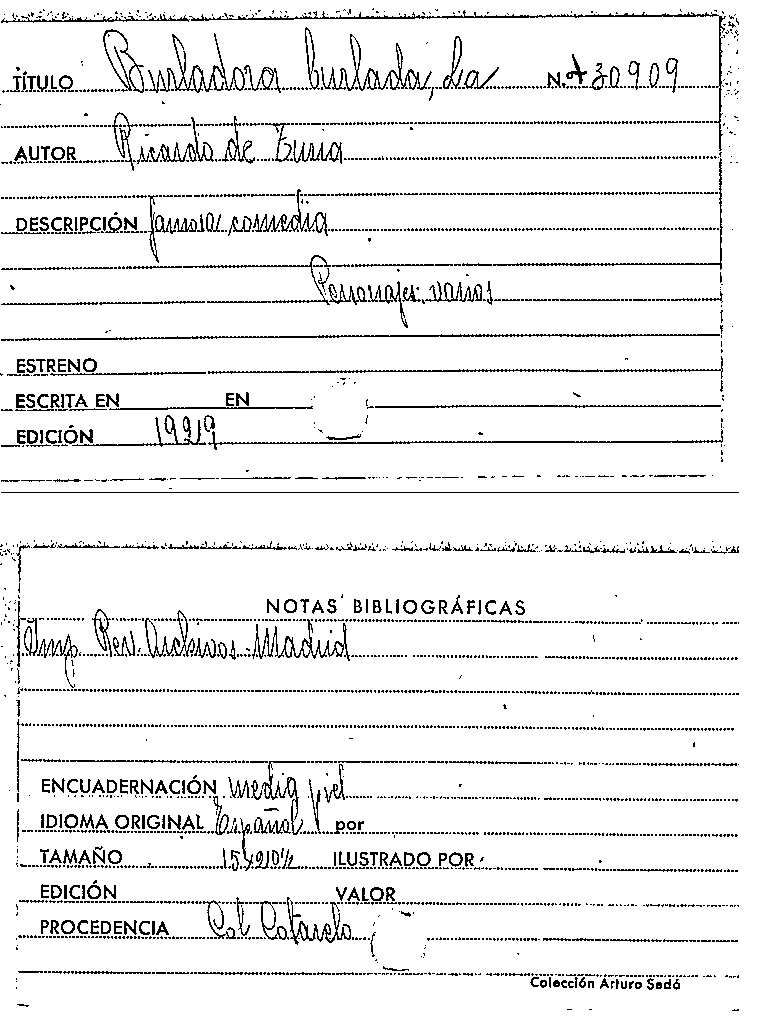 TÍTULO Burladora burlada, La N.º 30909
AUTOR Ricardo de Turia
DESCRIPCIÓN famosa comedia
Personajes: varios
ESTRENO
ESCRITA EN EN
EDICIÓN 1929
NOTAS BIBLIOGRÁFICAS
Imp. Rev. Archivos - Madrid
ENCUADERNACIÓN media piel
IDIOMA ORIGINAL Español por
TAMAÑO 15x20½ ILUSTRADO POR
EDICIÓN VALOR
PROCEDENCIA Col Cotarelo
Colección Arturo Sedó